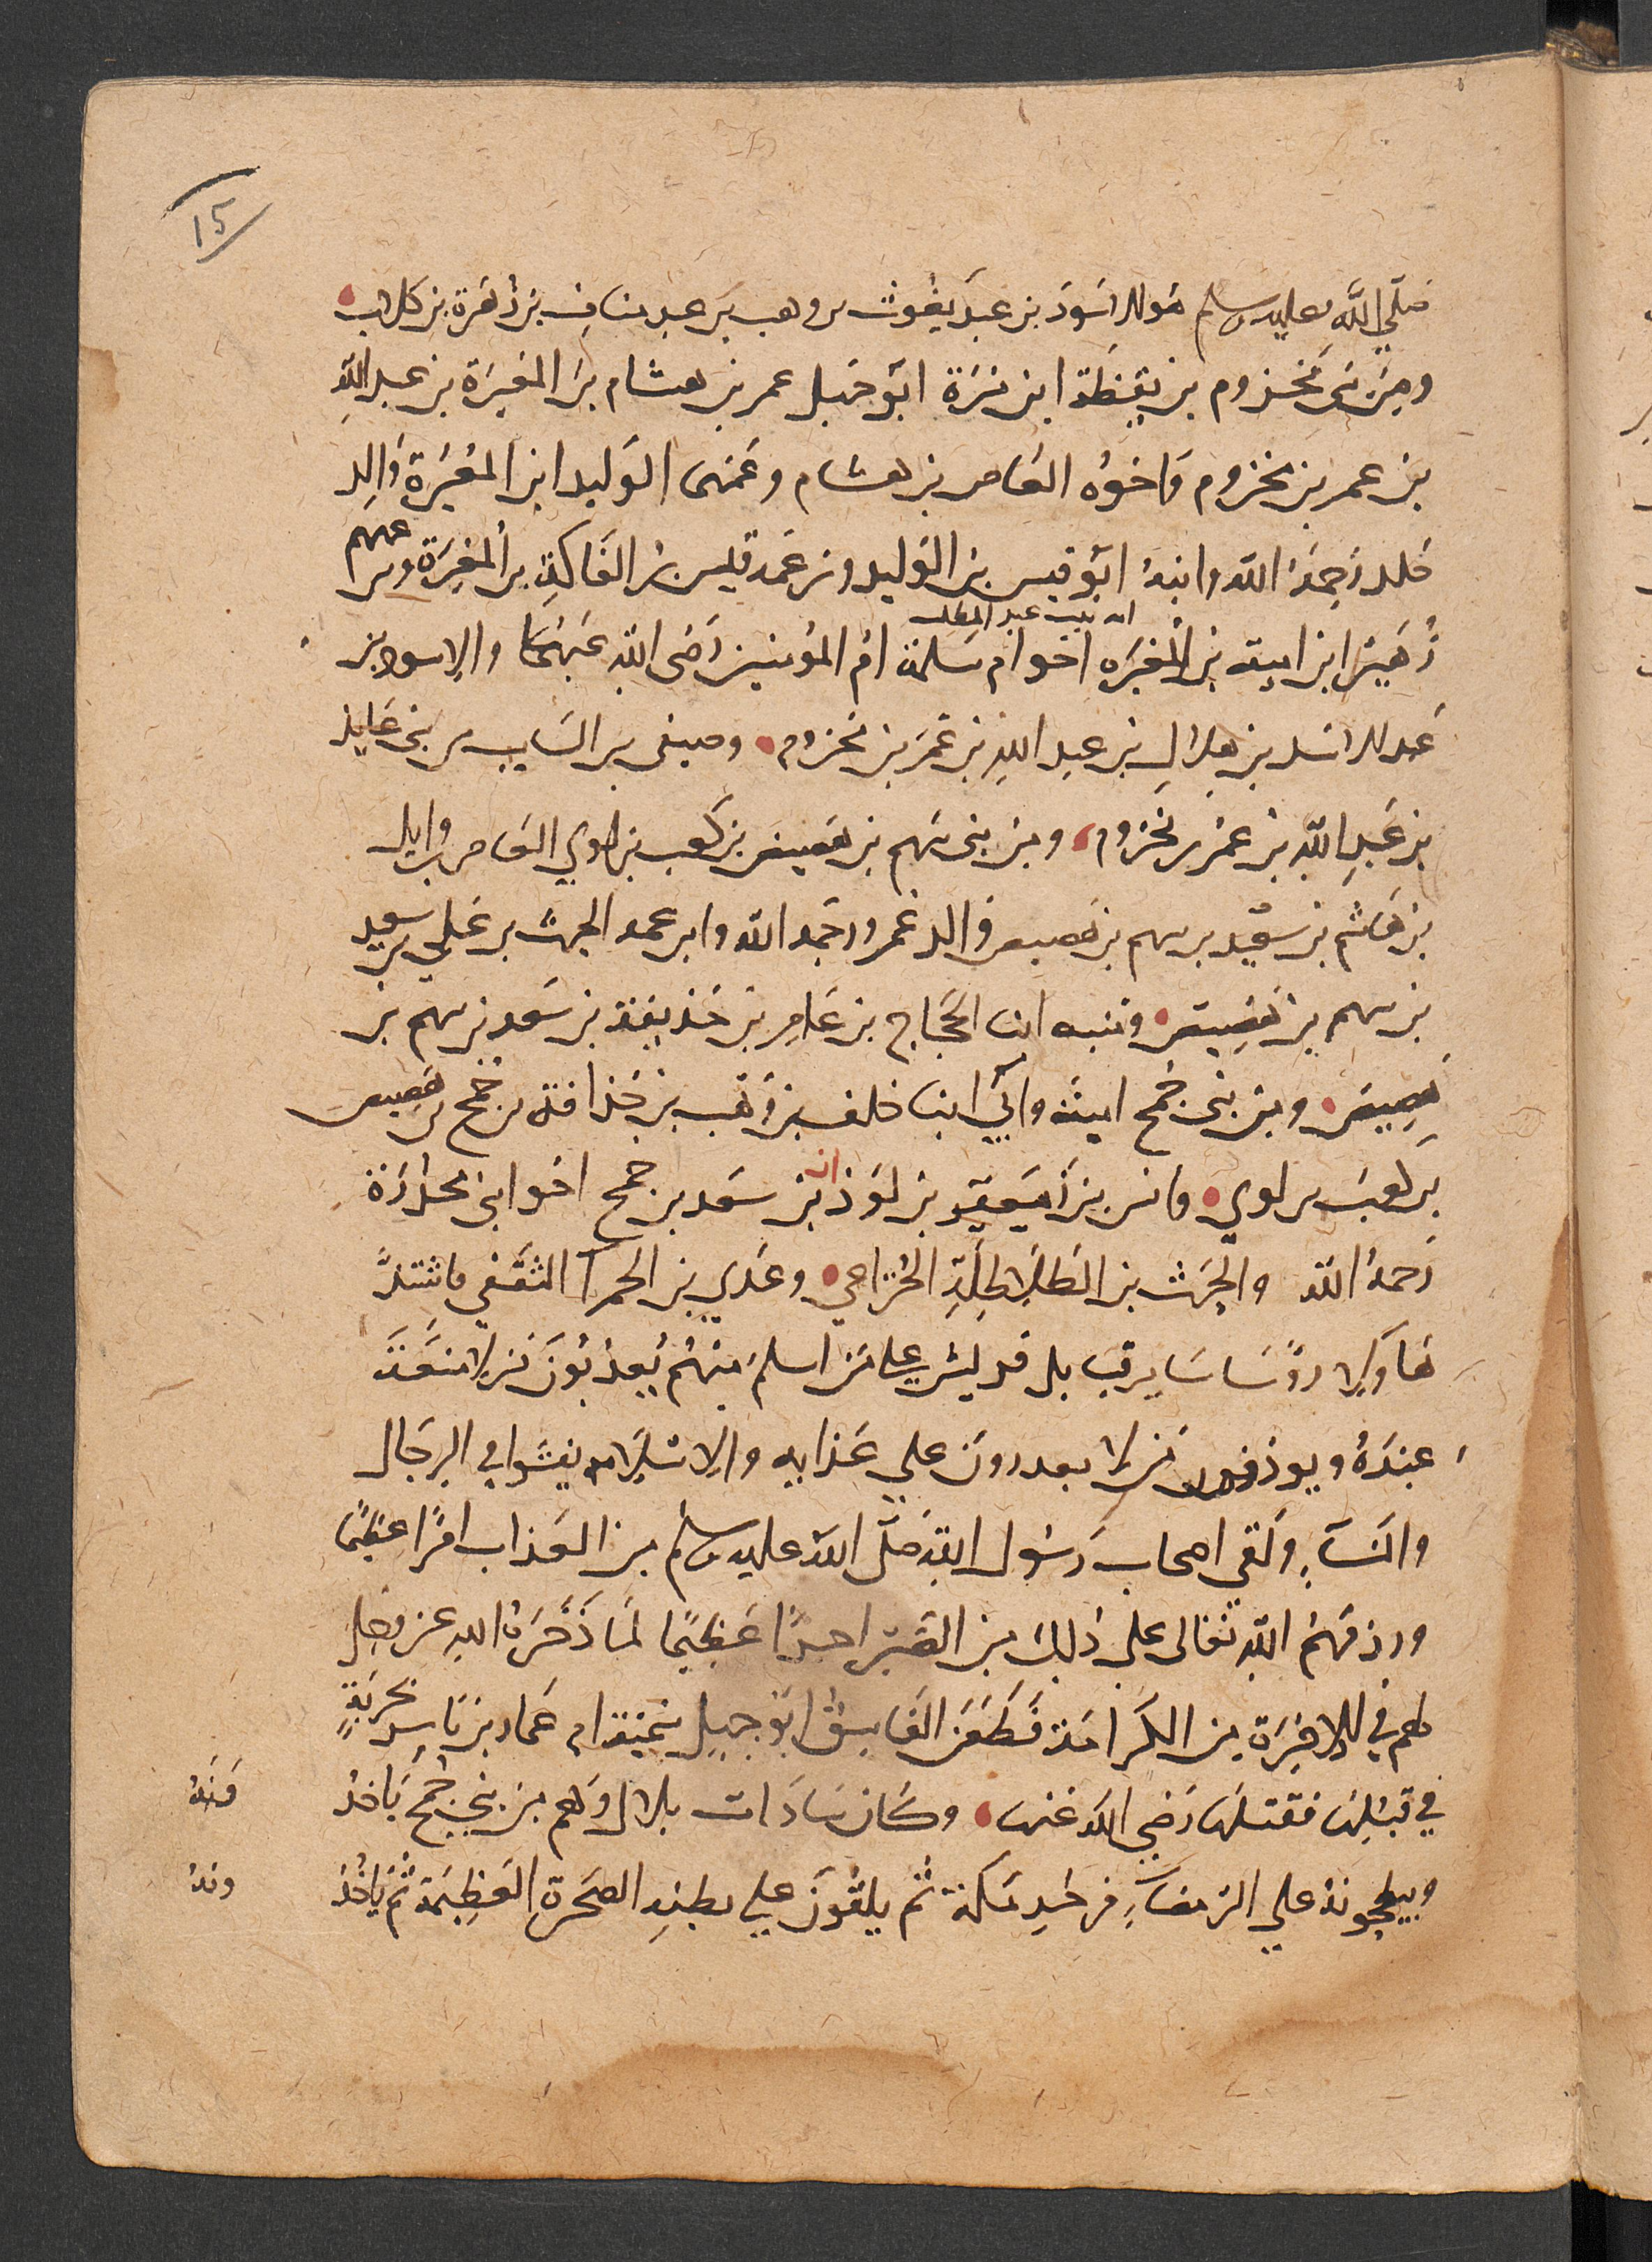 15
صلي الله عليه وسلم هو الاسود بن عبد يغوث بن وهب بن عبد مناف بن زهرة بن كلاب
ومن بني مخزوم بن يقظة ابن مرة ابو جهل عمر بن هشام بن المغيرة بن عبد الله
بن عمر بن مخزوم واخوه العاص بن هشام وعمهما الوليد ابن المغيرة والد
خلد رحمه الله وابنه ابو قيس بن الوليد وبن عمه قيس بن الفاكه بن المغيرة وبن عمهم
زهير ابن ابي امية بن المغيره اخو ام سلمة ام المومنين رضي الله عنهما والاسود بن
امه بنت عبد المطلب
عبد الاسد بن هلال بن عبد الله بن عمر بن مخزوم وصيفى بن السايب من بني عايذ
بن عبد الله بن عمر بن مخزوم ومن بني سهم بن هصيص بن كعب بن لوي العاص بن وايل
بن هاشم بن سعيد بن سهم بن هصيص والد عمرو رحمه الله وابن عمه الحرث بن عدي بن سعيد
بن سهم بن هصيص ومنبه ابنا الحجاج بن عامر بن حذيفة بن سعد بن سهم بن
هصيص ومن بني جمح امية وابي ابنا خلف بن وهب بن حذافة بن جمح بن هصيص
بن كعب بن لوي وانس بن معير بن لوذان بن سعد بن جمح اخو ابي محذورة
رحمه الله والحرث بن الطلاطلة الخزاعي وعدي بن الحمرا الثقفي فاشتد
هاولا روسا ساير قبايل قريش علي من اسلم منهم يعذبون من لا منعة
عنده ويوذون من لا يقدرون علي عذابه والاسلام يفشوا في الرجال
والنساء ولقى اصحاب رسول الله صلى الله عليه وسلم من العذاب امرا عظيما
ورزقهم الله تعالى على ذلك من الصبر اجرا عظيما لما ذخره الله عز وجل
لهم في الاخرة من الكرامة فطعن الفاسق ابو جهل سمية ام عمار بن ياسر بحربة
في قبلها فقتلها رضي الله عنها وكان سادات بلال وهم من بني جمح ياخذونه
ويبطحونه علي الرمضاء في حر مكة ثم يلقون علي بطنه الصخرة العظيمة ثم ياخذونه